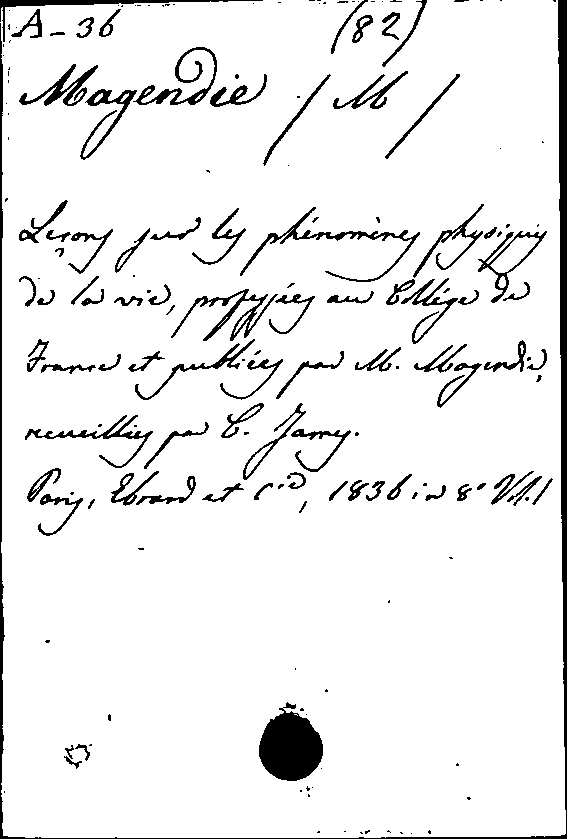 A-36 (82)
Magendie /M/
Leçons sur les phénomènes physiques
de la vie, professées au Collége de
France et publiées par M. Magendie,
recueillies par C. James.
Paris, Ebrard et Cie, 1836 in 8° Vol. 1